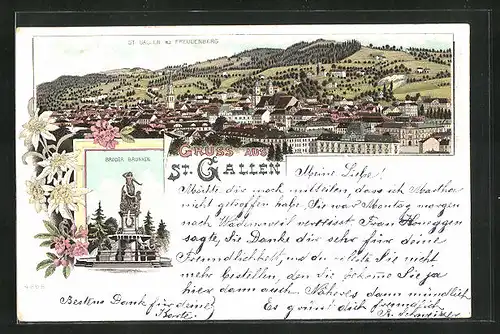 ST. GALLEN FREUDENBERG
GRUSS AUS
ST. GALLEN
BRODER BRUNNEN
Meine Liebe!
Möchte dir noch mitteilen, dass ich Martha
nicht getroffen habe. Sie war Montag morgen
nach Wädensweil verreisst. Frau Honeggen
sagte, Sie Danke dir sehr für deine
Freundlichkeit, und du sollste Sie nicht
mehr bestellen, den Sie Sie ja
hier dann auch. Näheres dann mündlich
Es grüsst dich freundlich
Besten Dank für deine
Karte.